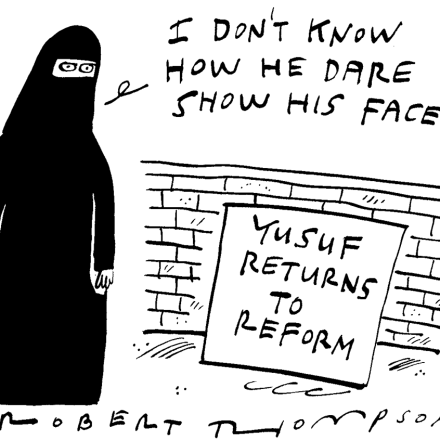 I DON'T KNOW
HOW HE DARE
SHOW HIS FACE
YUSUF
RETURNS
TO
REFORM
ROBERT THOMPSON